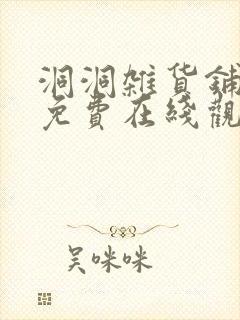 洞洞雜貨鋪
免費在綫觀
吴咪咪